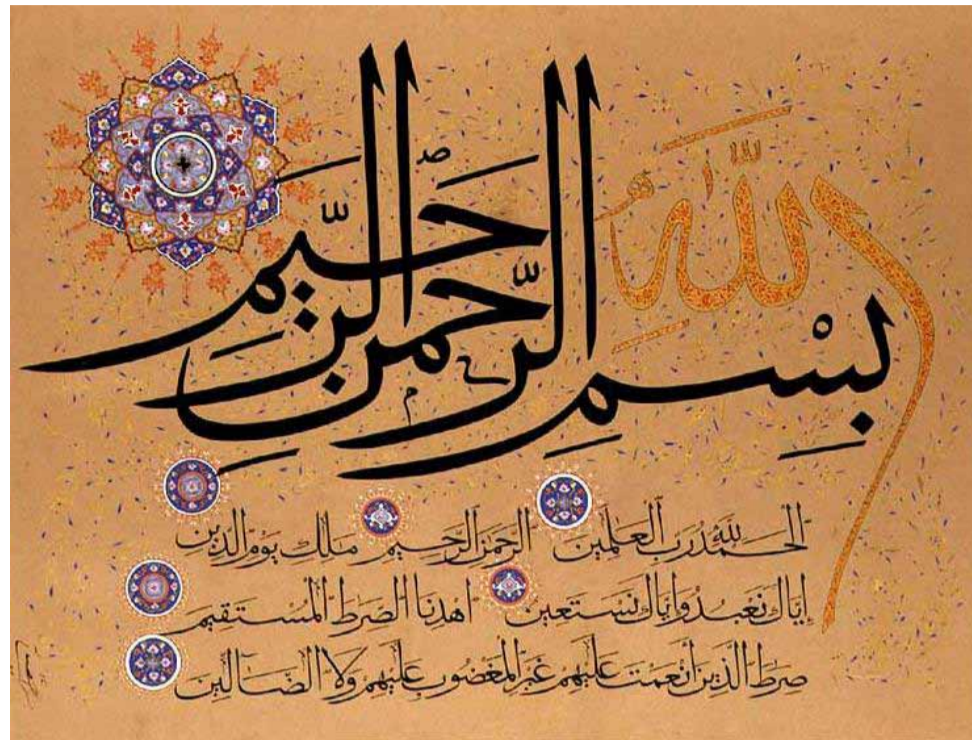 بِسْمِ اللّٰه الرَّحمٰن الرَّحيمِ
الحمد لله رب العلمين الرحمن الرحيم ملك يوم الدين
إياك نعبد وإياك نستعين اهدنا الصرط المستقيم
صرط الذين أنعمت عليهم غير المغضوب عليهم ولا الضالين